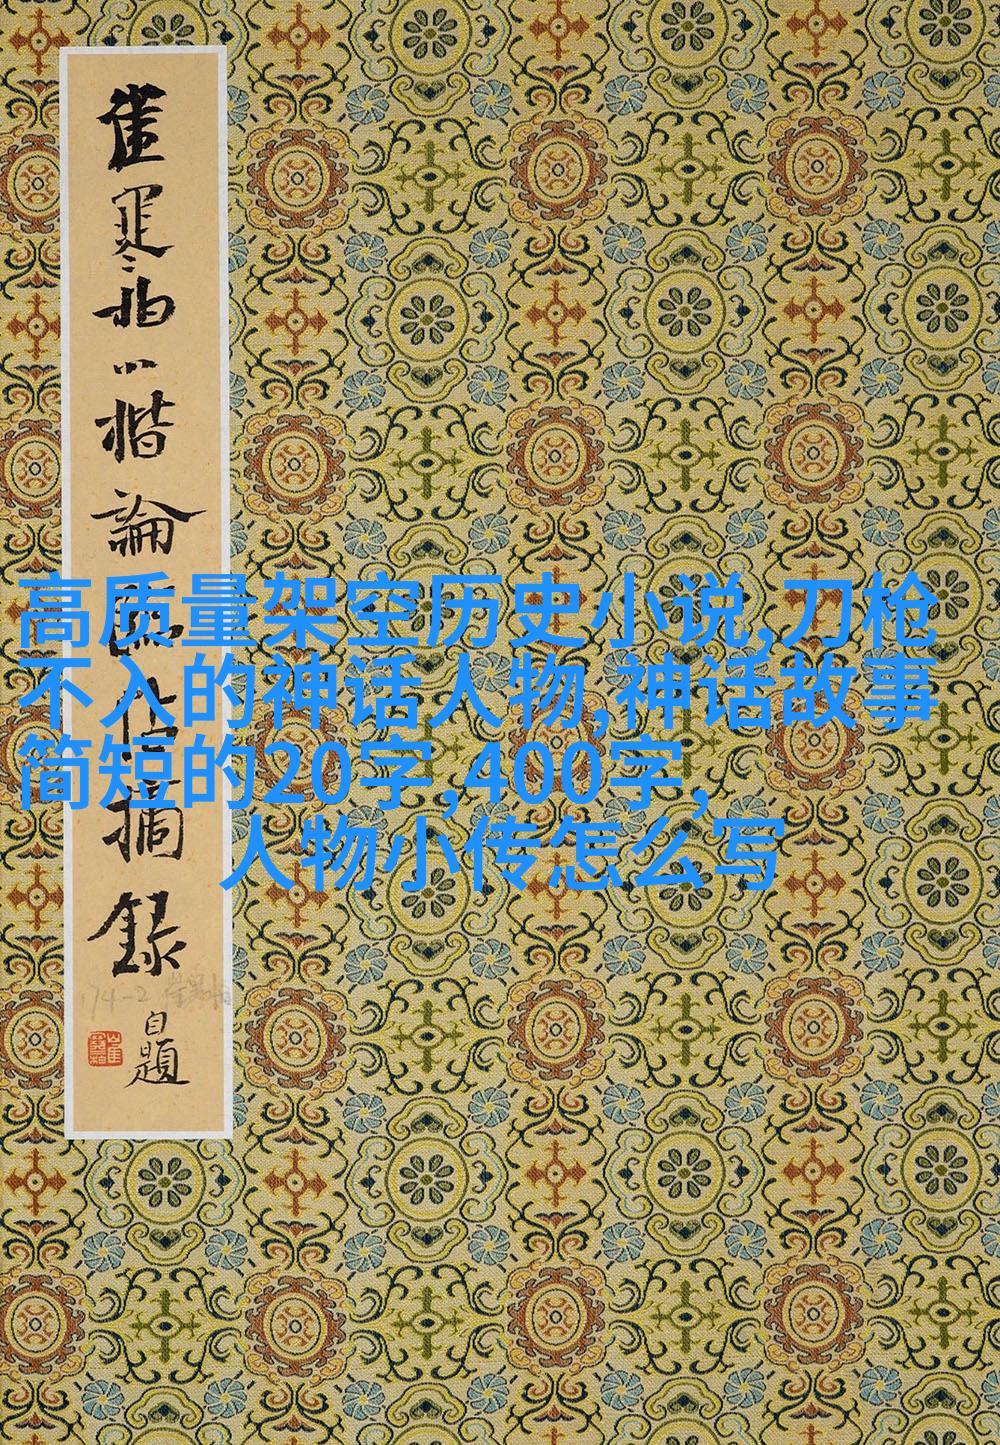 崔寒柏小楷論帖摘録
自題
174-2 崔寒柏
高质量架空历史小说,刀枪
不入的神话人物,神话故事
简短的20字,400字,
人物小传怎么写